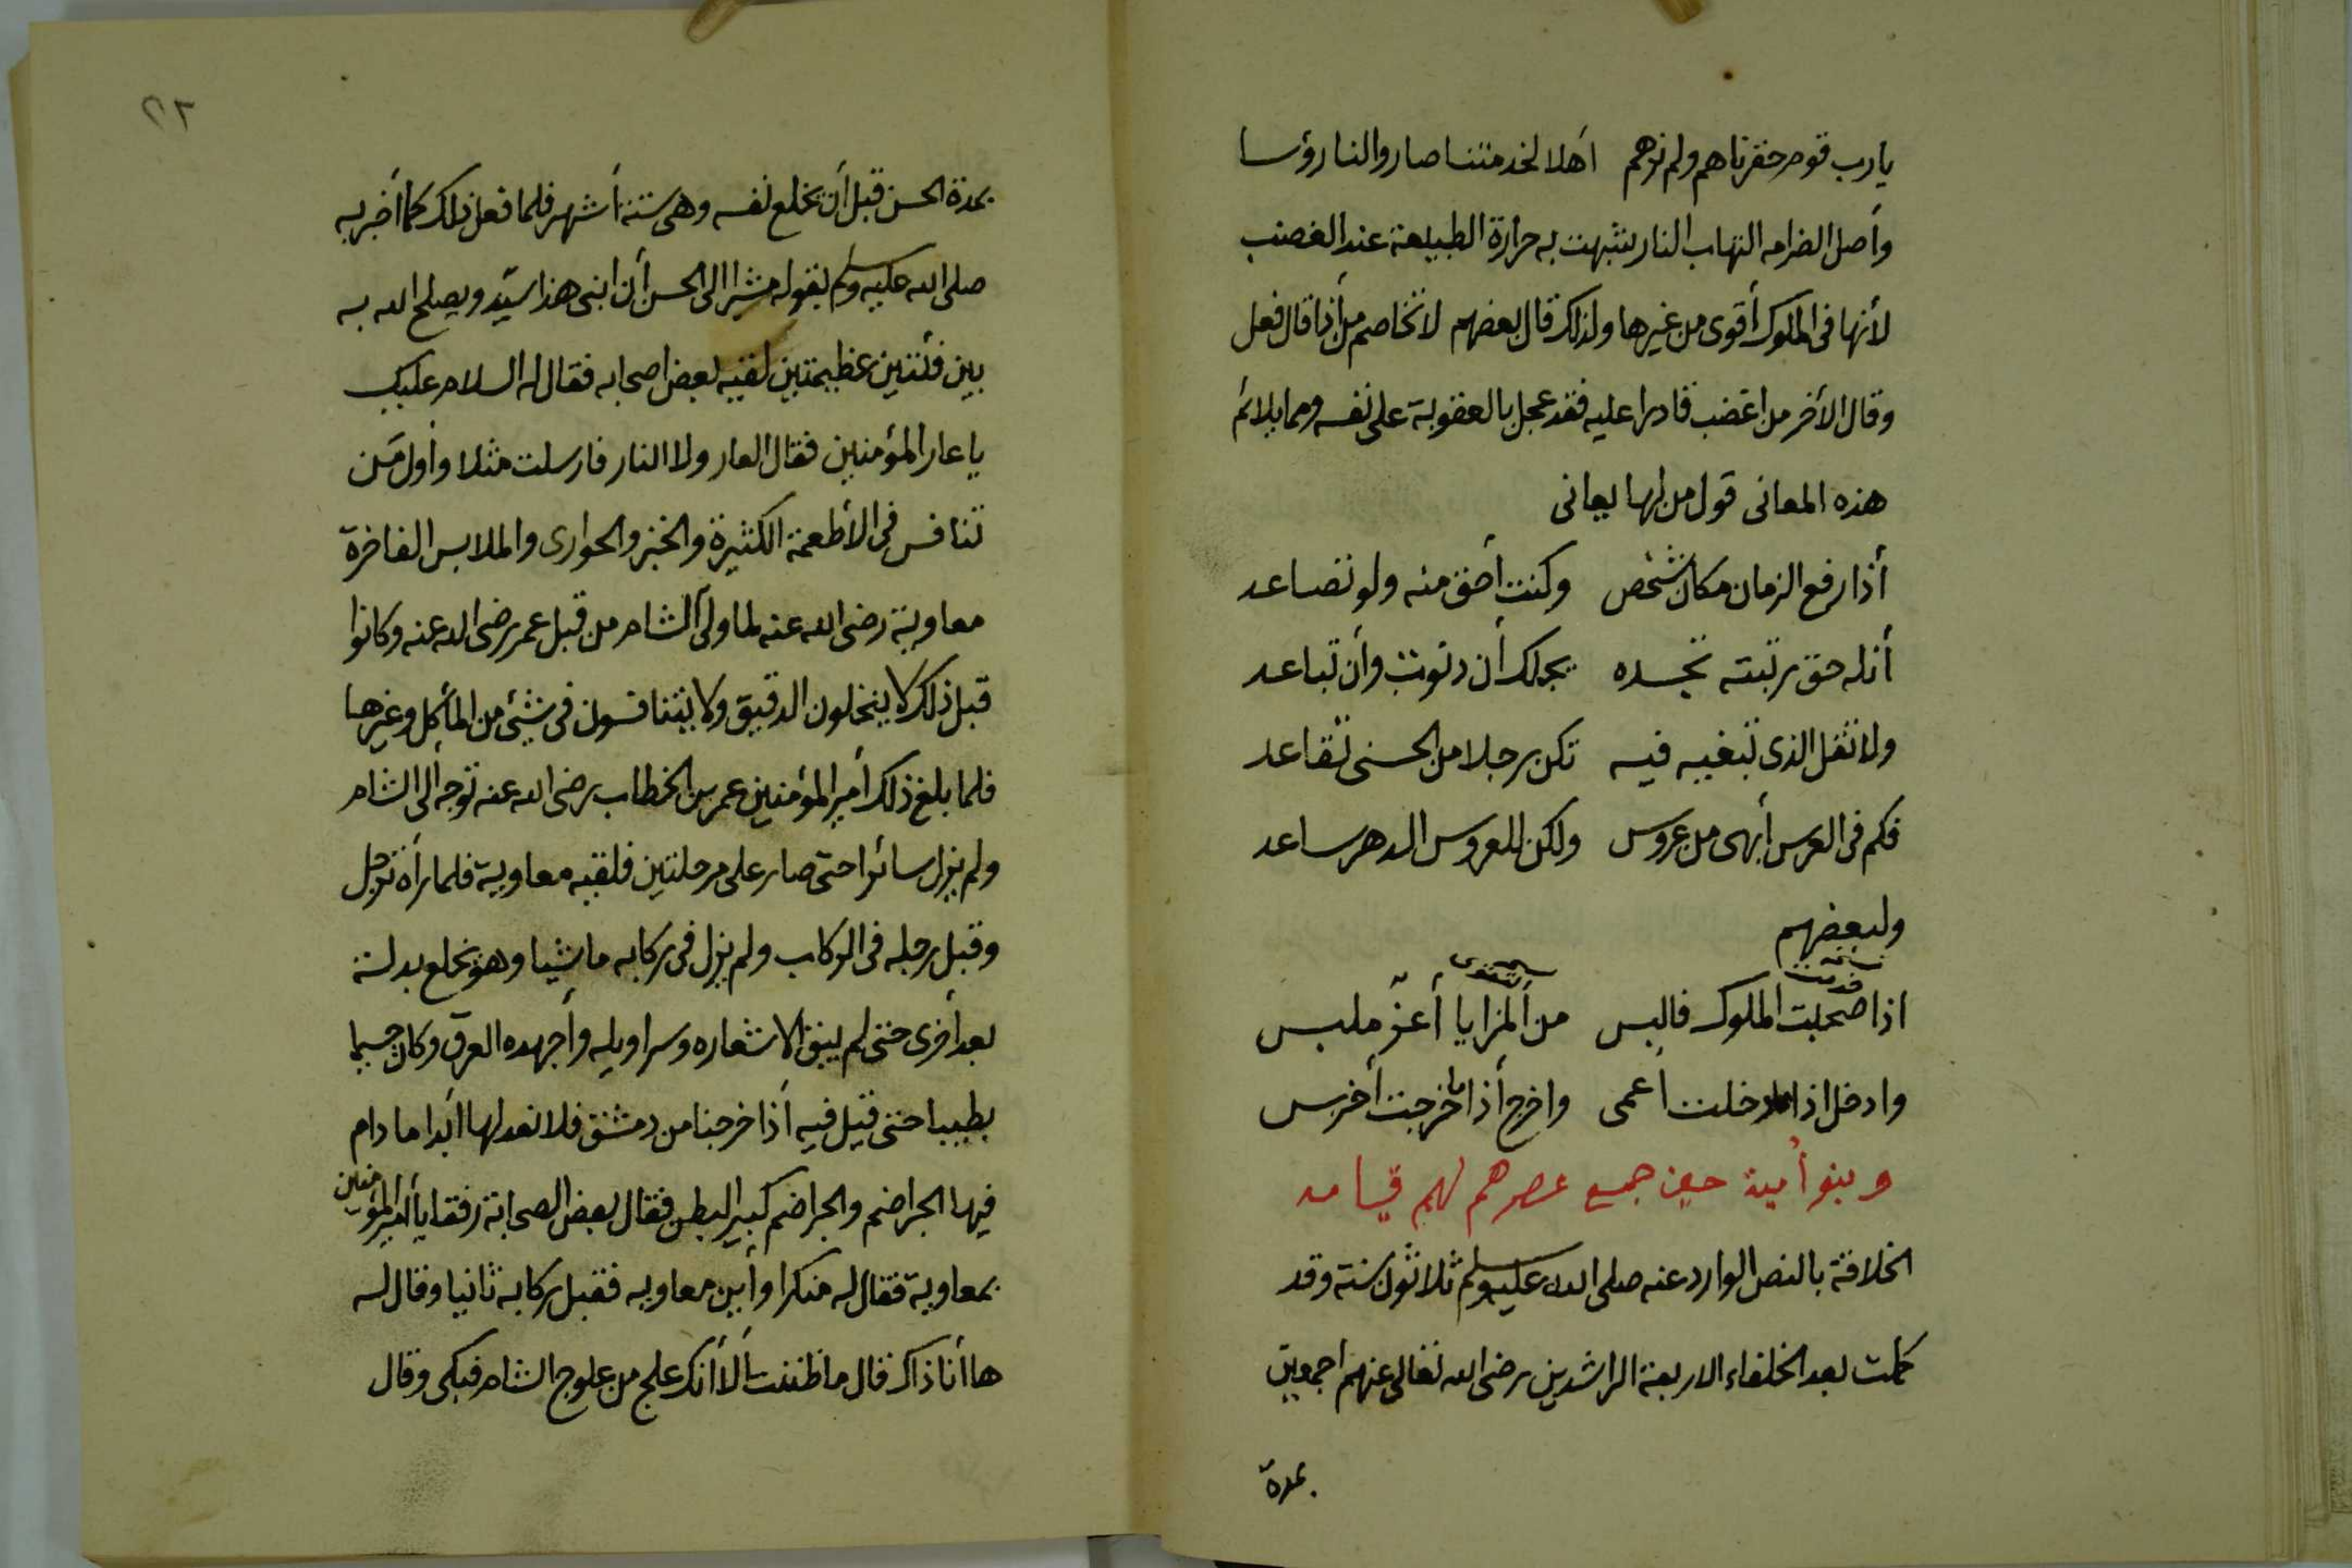 يارب قوم حقرناهم ولم نرهم اهلا لخدمتنا صاروا لنا رؤسا
وأصل الضرامه التهاب النار شبهت به حرارة الطبيعة عند الغضب
لأنها فى الملوك أقوى من غيرها ولذلك قال بعضهم لا تخاصم من أذا قال فعل
وقال الأخر من اغضب قادرا عليه فقد عجل بالعقوبة على نفسه ومما يلائم
هذه المعانى قول من لها يعانى
أذا رفع الزمان مكان شخص وكنت أحق منه ولو تصاعد
أنله حق رتبته تجده يجلك أن دنوت وأن تباعد
ولا تقل الذى تبغيه فيه تكن رجلا من الحسنى تقاعد
فكم فى العرس أبهى من عروس ولكن للعروس الدهر ساعد
ولبعضهم
اذا صحبت الملوك فالبس من المزايا أعز ملبس
وادخل اذا ما دخلت أعمى واخرج أذا ما خرجت أخرس
وبنو أمية حين جميع عصرهم لهم قيامه
الخلافة بالنص الوارد عنه صلى الله عليه وسلم ثلاثون سنة وقد
كملت بعد الخلفاء الاربعة الراشدين رضى الله تعالى عنهم اجمعين
بمدة
٥٢
بمدة الحسن قبل أن يخلع نفسه وهى ستة أشهر فلما فعل ذلك كما أخبر به
صلى الله عليه وسلم بقوله مشيرا الى الحسن أن ابنى هذا سيد ويصلح الله به
بين فئتين عظيمتين لقيه بعض اصحابه فقال له السلام عليك
يا عار المؤمنين فقال العار ولا النار فارسلت مثلا وأول من
تنافس فى الأطعمة الكثيرة والخبز والحوارى والملابس الفاخرة
معاوية رضى الله عنه لما ولى الشام من قبل عمر رضى الله عنه وكانوا
قبل ذلك لا ينخلون الدقيق ولا يتنافسون فى شيئ من المأكل وغيرها
فلما بلغ ذلك أمير المؤمنين عمر بن الخطاب رضى الله عنه توجه الى الشام
ولم يزل سائرا حتى صار على مرحلتين فلقيه معاوية فلما رأه ترجل
وقبل رجله فى الركاب ولم يزل فى ركابه ماشيا وهو يخلع بدلة
بعد أخرى حتى لم يبق الا شعاره وسراويله وأجهده العرق وكان جسيما
بطيبا حتى قيل فيه أذا خرجنا من دمشق فلا نعد لها أبدا ما دام
فيها الجراضم والجراضم كبير البطن فقال بعض الصحابة رفقا يا أمير المؤمنين
بمعاوية فقال له منكرا وأين معاويه فقبل ركابه ثانيا وقال له
ها أنا ذاك قال ما ظننت ألا أنك علج من علوج الشام فبكى وقال